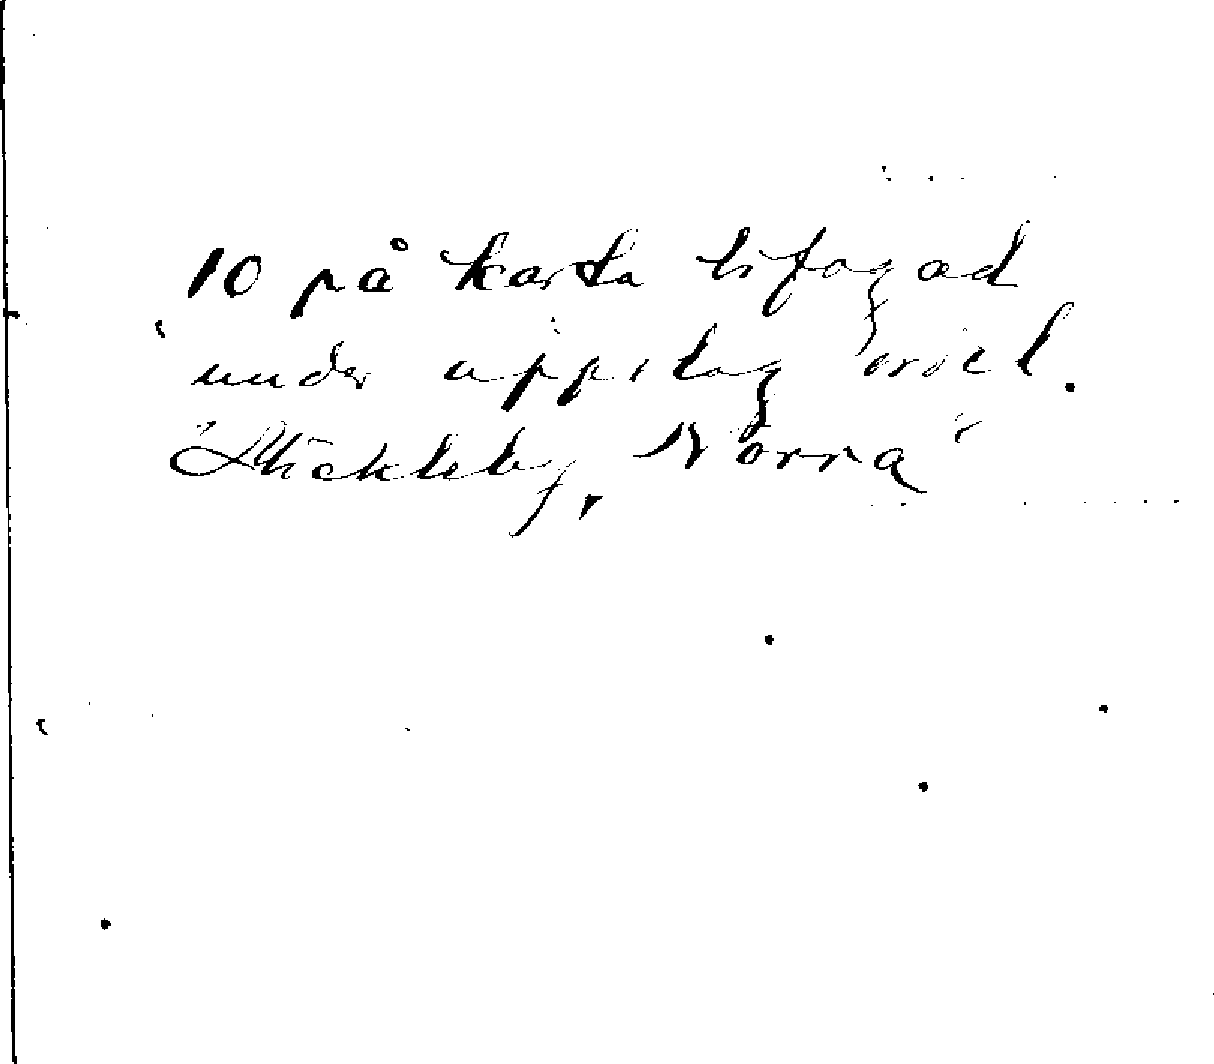 10 på karta bifogad
under uppslag
"Möckleby, Norra"